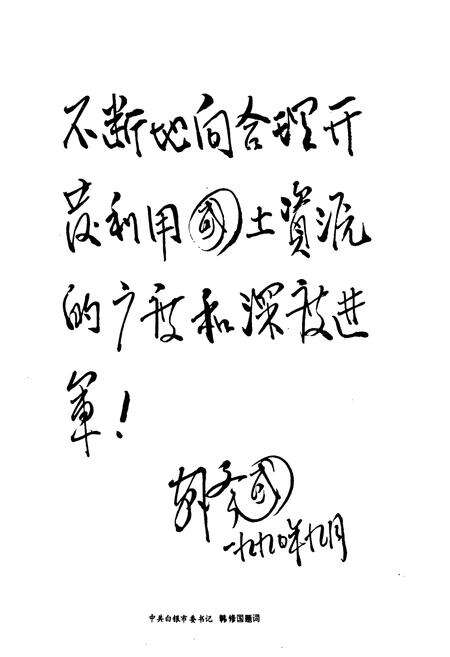 不断地向合理开
发利用國土資源
的广度和深度进
軍!
韩修國
一九九〇年九月
中共白银市委书记 韩修国题词